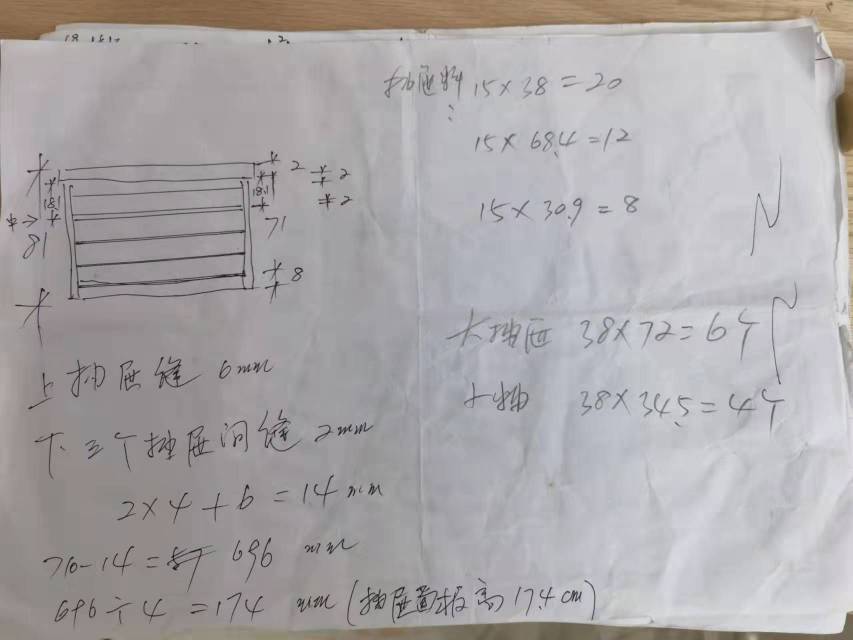 抽屉料：15×38=20
15×68.4=12
15×30.9=8
2
2
2
18.1
18.1
71
81
8
大抽屉 38×72=6个
小抽 38×34.5=4个
上抽屉缝 6mm
下三个抽屉间缝 2mm
2×4+6=14mm
710-14=696 mm
696÷4=174 mm(抽屉面板高17.4cm)